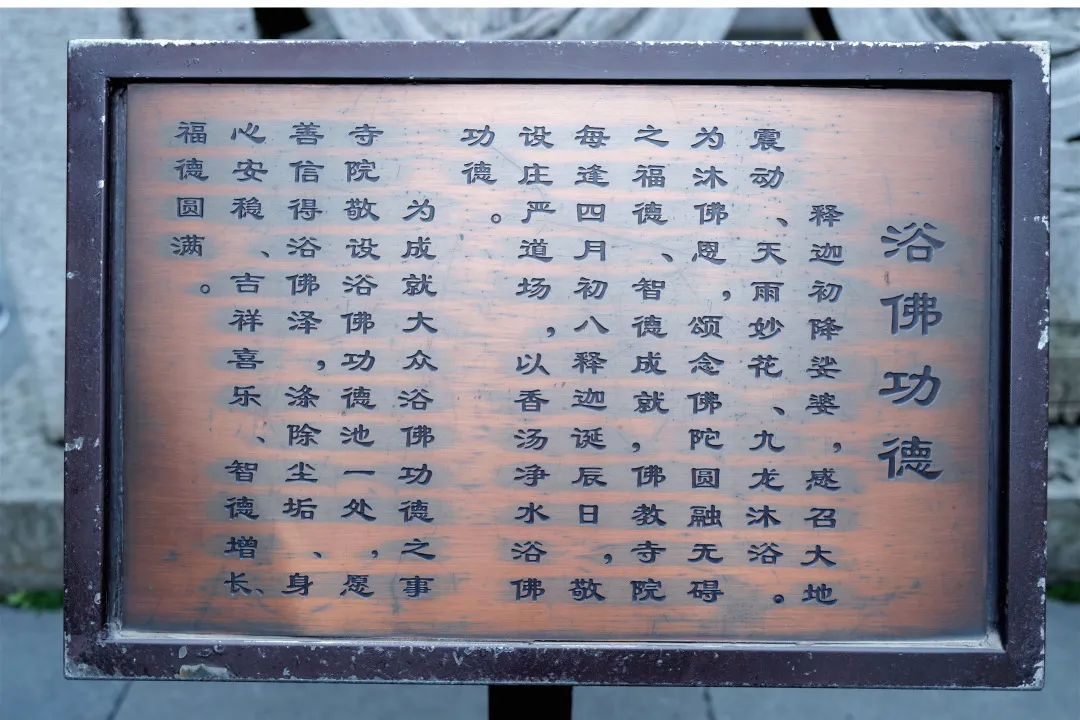 浴佛功德
释迦初降娑婆，感召大地
震动、天雨妙花、九龙沐浴。
为沐佛恩，颂念佛陀圆融无碍
之福德、智德成就，佛教寺院
每逢四月初八释迦诞辰日，敬
设庄严道场，以香汤净水浴佛
功德。
为成就大众浴佛功德之事
寺院敬设浴佛功德池一处，愿
善信得浴佛泽，涤除尘垢、身
心安稳、吉祥喜乐、智德增长、
福德圆满。